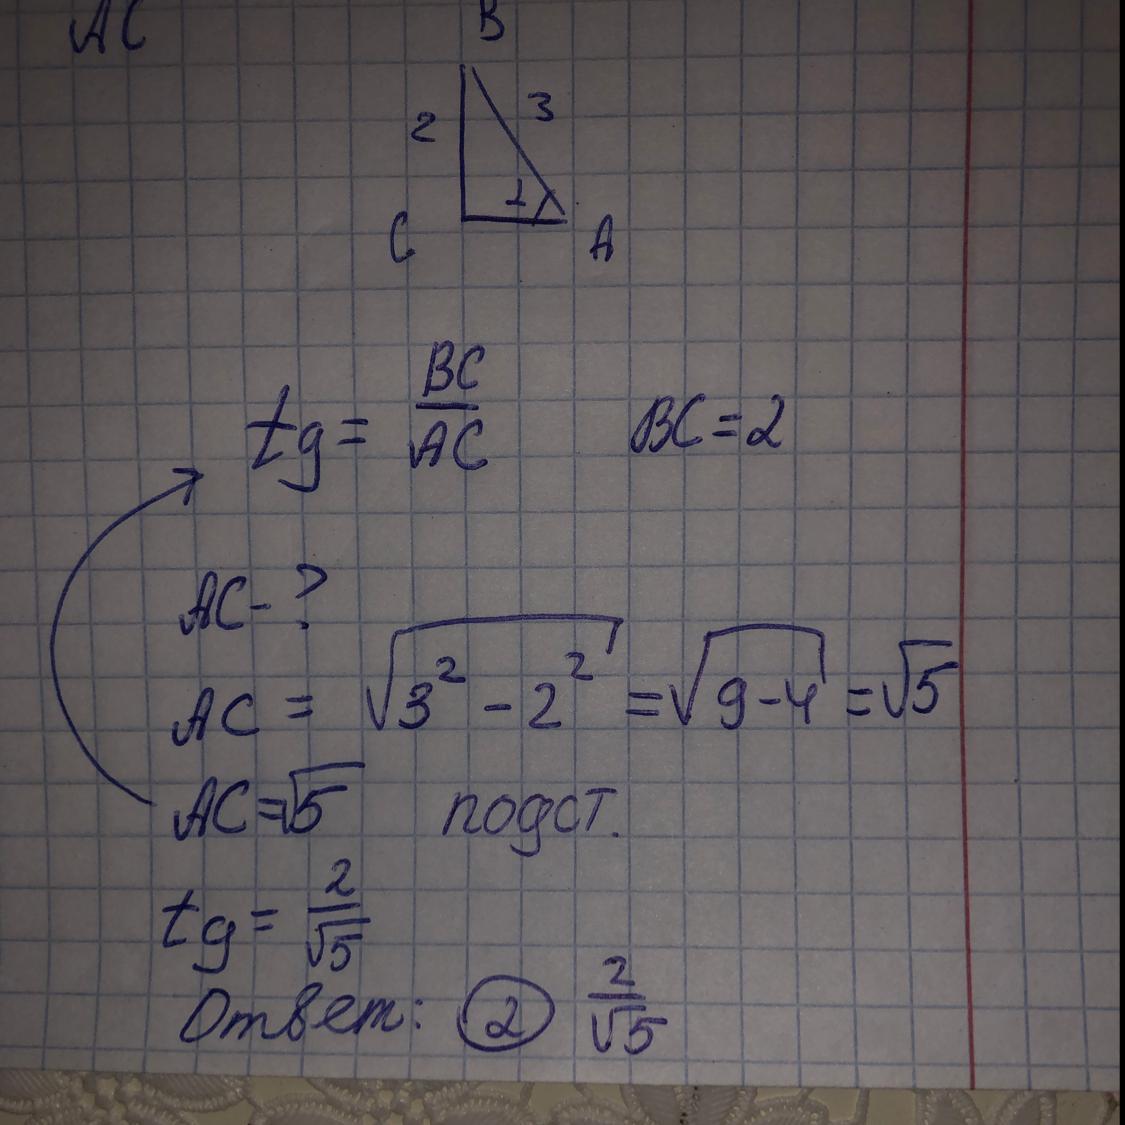 AC
B
2 3
1
C A
tg = BC/AC BC=2
AC-?
AC = √3² - 2² = √9-4 = √5
AC=√5 подст.
tg = 2/√5
Ответ: 2 2/√5